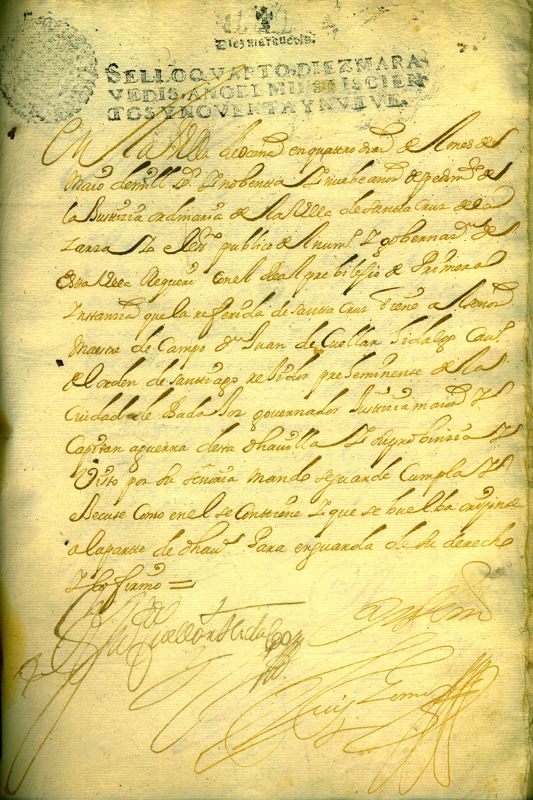 Diez marauedis.
SELLO QVARTO, DIEZ MARA
VEDIS, AÑO DE MIL SEISCIEN
TOS Y NOVENTA Y NVEVE.
En la Villa de Ocaña en quatro dias del mes de
Maio de mill y nobenta y nuebe años de pedimto de
la Justizia ordinaria de la Villa de santa Cruz de la
Zarza Yo el essno publico del numo y gobernazn de
esta Villa Requeri con el Real prebilejio de Primera
Instanzia que la referida de santa Cruz tiene al señor
Maestre de Campo Dn Juan de Cuellar hidalgo Cauo
del orden de santiago rejidor preheminente de la
Ciudad de Badajoz gouernador Justizia maior y
Capitan aguerra desta dha uilla y su probinzia y
Visto por su señoria mando se guarde Cumpla y
execute Como en el se Contiene y que se buelba orijinal
a la parte de dha va para en guarda de su derecho
y lo firmo =
Cuellar hidalgo
Ante mi
Luis